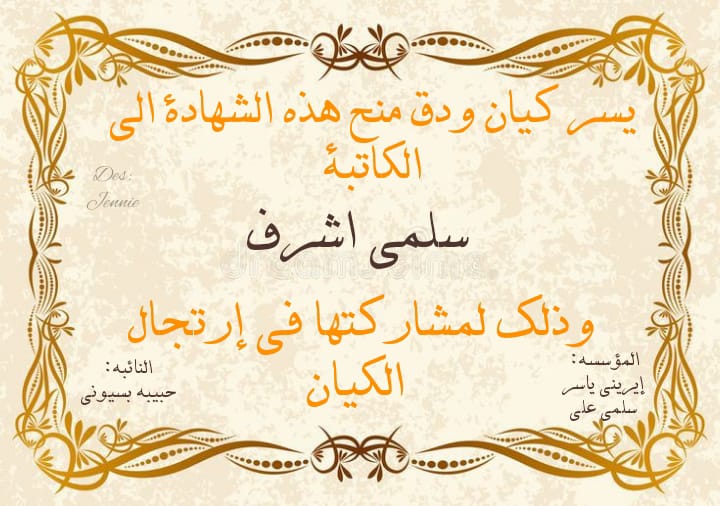 يسر كيان ودق منح هذه الشهادة الى
الكاتبة
Des:
Jennie
سلمى اشرف
dreamstime
وذلك لمشاركتها فى إرتجال
الكيان
المؤسسه:
إيرينى ياسر
سلمى على
النائبه:
حبيبه بسيونى